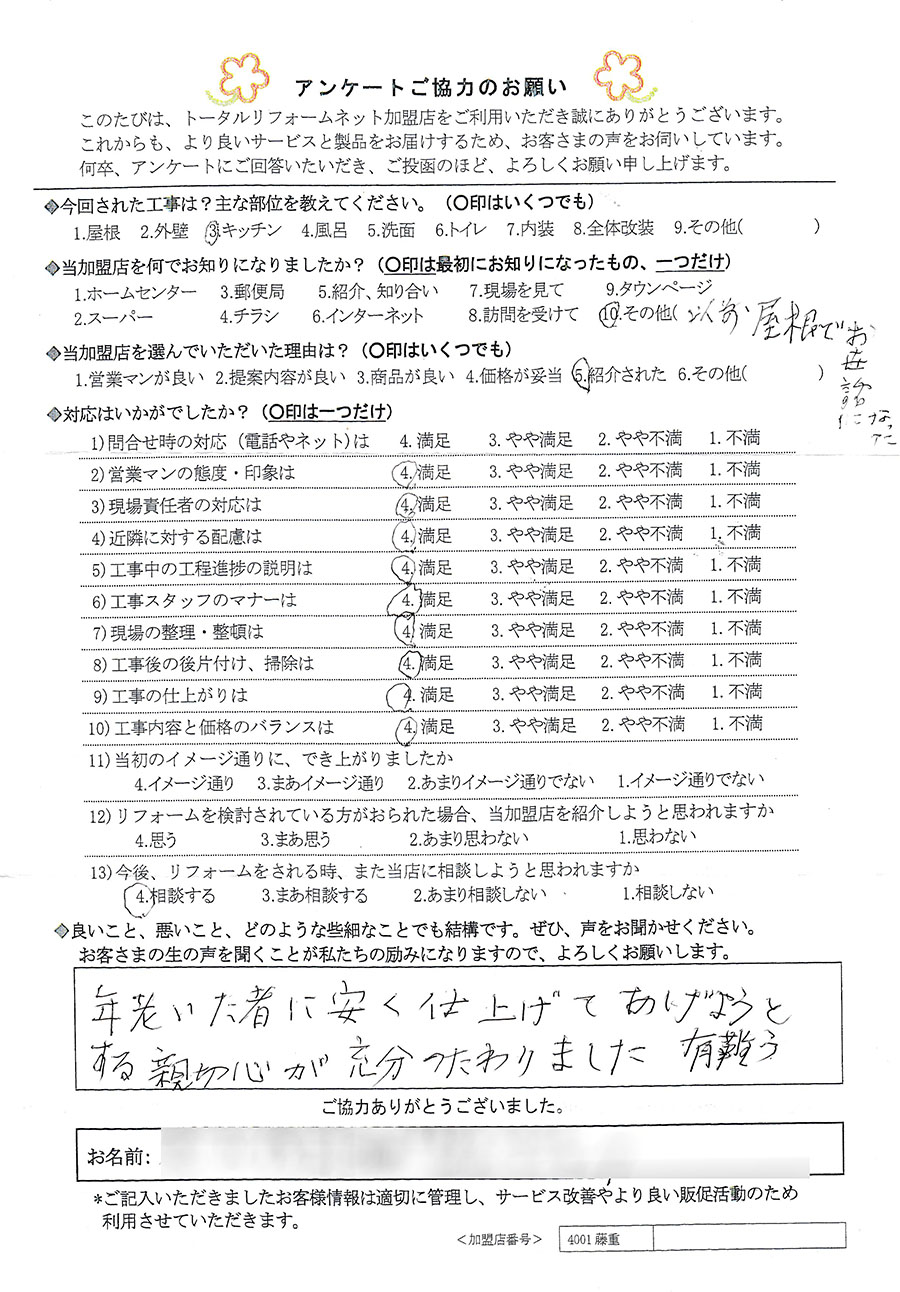 アンケートご協力のお願い
このたびは、トータルリフォームネット加盟店をご利用いただき誠にありがとうございます。
これからも、より良いサービスと製品をお届けするため、お客さまの声をお伺いしています。
何卒、アンケートにご回答いたいだき、ご投函のほど、よろしくお願い申し上げます。
◆今回された工事は?主な部位を教えてください。(〇印はいくつでも)
1.屋根 2.外壁 3.キッチン 4.風呂 5.洗面 6.トイレ 7.内装 8.全体改装 9.その他( )
◆当加盟店を何でお知りになりましたか?(〇印は最初にお知りになったもの、一つだけ)
1.ホームセンター 3.郵便局 5.紹介、知り合い 7.現場を見て 9.タウンページ
2.スーパー 4.チラシ 6.インターネット 8.訪問を受けて 10.その他( 以前 屋根でお世話になった
◆当加盟店を選んでいただいた理由は?(〇印はいくつでも)
1.営業マンが良い 2.提案内容が良い 3.商品が良い 4.価格が妥当 5.紹介された 6.その他( )
◆対応はいかがでしたか?(〇印は一つだけ)
1)問合せ時の対応(電話やネット)は 4.満足 3.やや満足 2.やや不満 1.不満
2)営業マンの態度・印象は 4.満足 3.やや満足 2.やや不満 1.不満
3)現場責任者の対応は 4.満足 3.やや満足 2.やや不満 1.不満
4)近隣に対する配慮は 4.満足 3.やや満足 2.やや不満 1.不満
5)工事中の工程進捗の説明は 4.満足 3.やや満足 2.やや不満 1.不満
6)工事スタッフのマナーは 4.満足 3.やや満足 2.やや不満 1.不満
7)現場の整理・整頓は 4.満足 3.やや満足 2.やや不満 1.不満
8)工事後の後片付け、掃除は 4.満足 3.やや満足 2.やや不満 1.不満
9)工事の仕上がりは 4.満足 3.やや満足 2.やや不満 1.不満
10)工事内容と価格のバランスは 4.満足 3.やや満足 2.やや不満 1.不満
11)当初のイメージ通りに、でき上がりましたか
4.イメージ通り 3.まあイメージ通り 2.あまりイメージ通りでない 1.イメージ通りでない
12)リフォームを検討されている方がおられた場合、当加盟店を紹介しようと思われますか
4.思う 3.まあ思う 2.あまり思わない 1.思わない
13)今後、リフォームをされる時、また当店に相談しようと思われますか
4.相談する 3.まあ相談する 2.あまり相談しない 1.相談しない
◆良いこと、悪いこと、どのような些細なことでも結構です。ぜひ、声をお聞かせください。
お客さまの生の声を聞くことが私たちの励みになりますので、よろしくお願いします。
年老いた者に安く仕上げてあげようと
する親切心が充分つたわりました 有難う
ご協力ありがとうございました。
お名前:
*ご記入いただきましたお客様情報は適切に管理し、サービス改善やより良い販促活動のため
利用させていただきます。
<加盟店番号> 4001 藤重